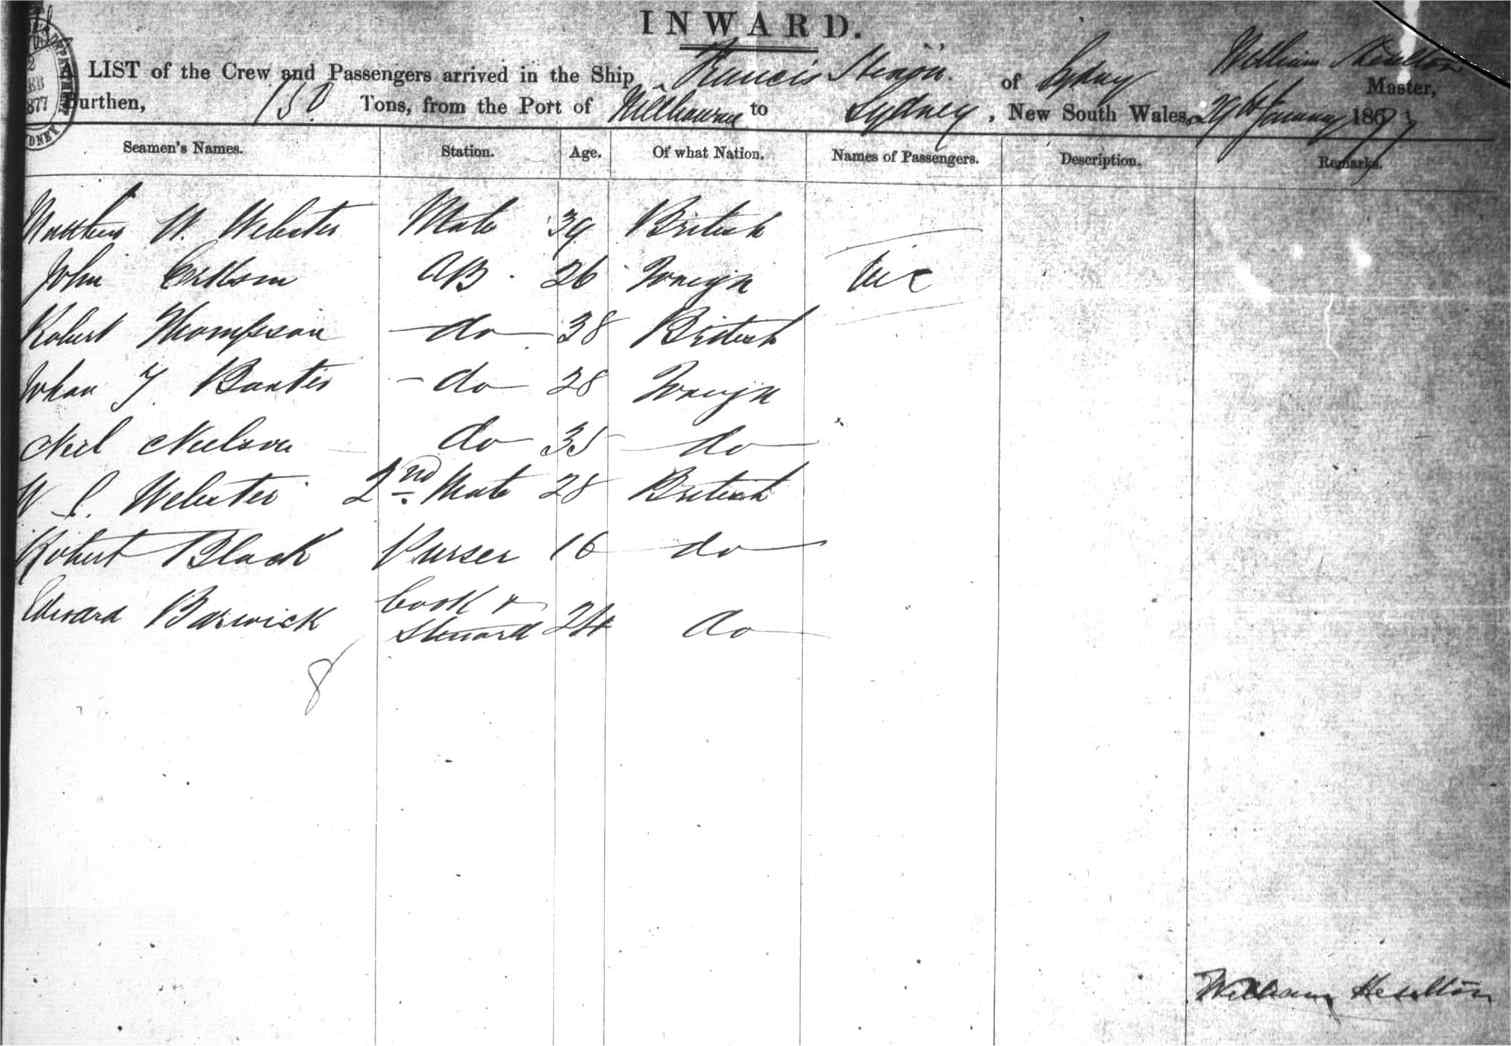 INWARD.
LIST of the Crew and Passengers arrived in the Ship Francis of Sydney William Master,
Burthen, 130 Tons, from the Port of Melbourne to Sydney, New South Wales, 29th January 1877
Seamen's Names. Station. Age. Of what Nation. Names of Passengers. Description. Remarks.
Matthew W. Webster Mate 39 British
John AB. 26 Foreign
Robert Thompson do 38 British
Johan Baxter do 28 Foreign
Neil Neilson do 35 do
W Webster 2nd Mate 28 British
Robert Black Purser 16 do
Edward Barwick Cook &
Steward 24 do
8
William Heselton